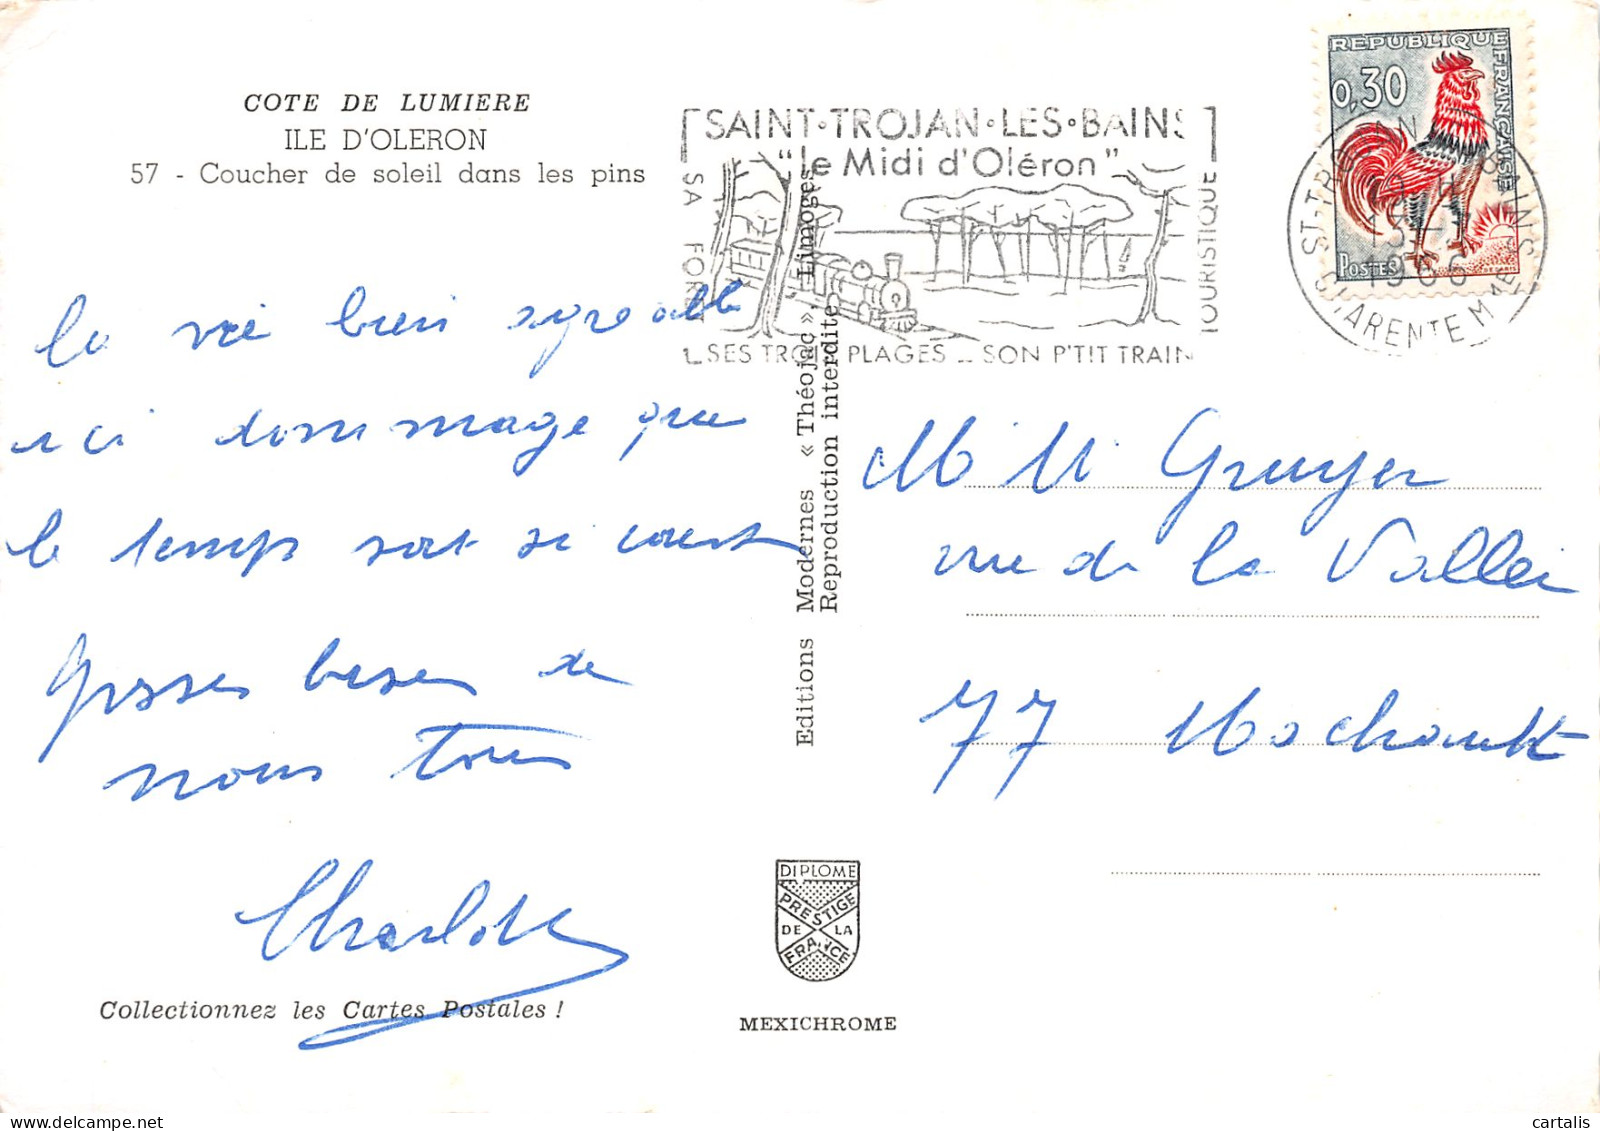 COTE DE LUMIERE
ILE D'OLERON
57 - Coucher de soleil dans les pins
SAINT·TROJAN·LES·BAINS
"le Midi d'Oléron"
SA FORET
TOURISTIQUE
SES TROIS PLAGES _ SON P'TIT TRAIN
REPUBLIQUE FRANÇAISE
0,30
POSTES
ST-TROJAN LES BAINS
1966
CHARENTE MME
la vie bien agreable
ici dommage que
le temps soit si court
Grosses bises de
nous tous
Charlotte
Editions Modernes « Théojac », Limoges
Reproduction interdite
Gruyer
rue de la Vallée
77
DIPLOME
PRESTIGE
DE LA
FRANCE
Collectionnez les Cartes Postales !
MEXICHROME
cartalis